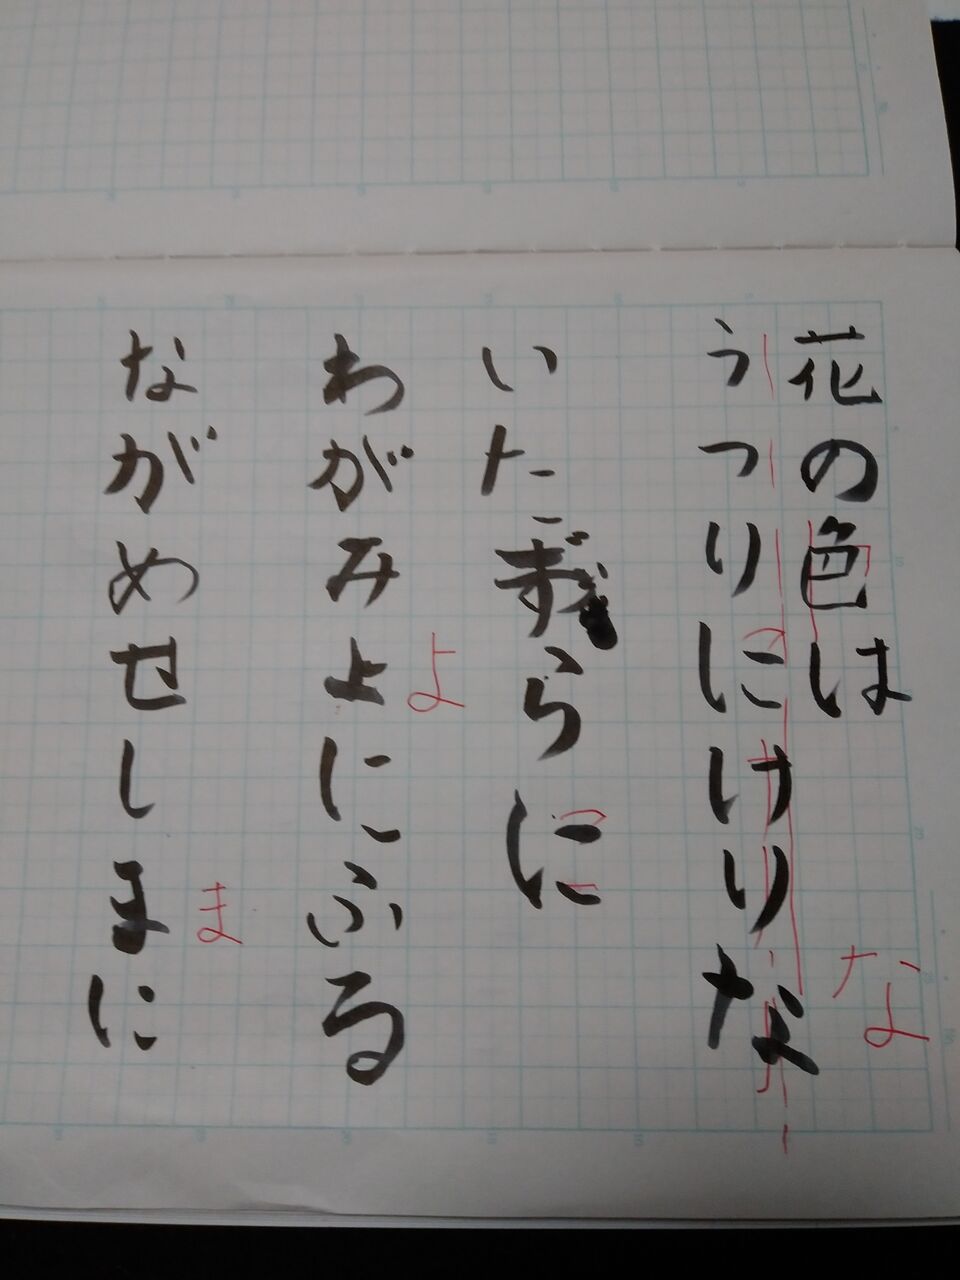 花の色は
うつりにけりな
いたずらに
わがみよにふる
ながめせしまに
な
よ
ま